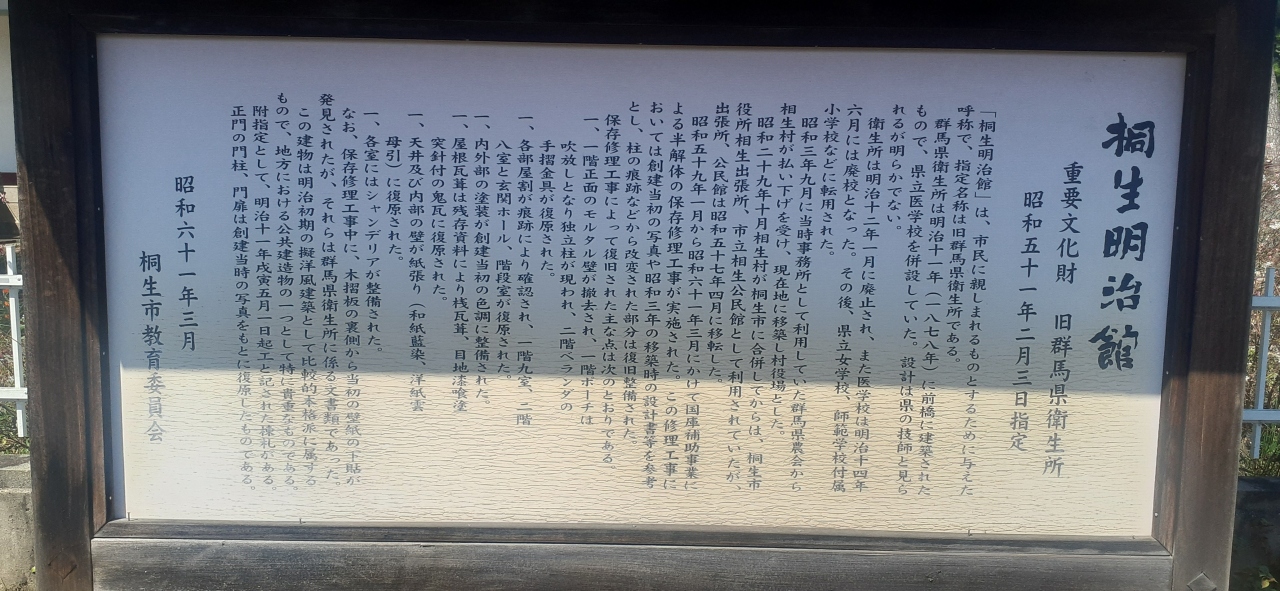 桐生明治館
重要文化財　旧群馬県衛生所
昭和五十一年二月三日指定
「桐生明治館」は、市民に親しまれるものとするために与えた
呼称で、指定名称は旧群馬県衛生所である。
群馬県衛生所は明治十一年（一八七八年）に前橋に建築された
もので、県立医学校を併設していた。設計は県の技師と見ら
れるが明らかでない。
衛生所は明治十二年一月に廃止され、また医学校は明治十四年
六月には廃校となった。その後、県立女学校、師範学校付属
小学校などに転用された。
昭和三年九月に当時事務所として利用していた群馬県農会から
相生村が払い下げを受け、現在地に移築し村役場とした。
昭和二十九年十月相生村が桐生市に合併してからは、桐生市
役所相生出張所、市立相生公民館として利用されていたが、
出張所、公民館は昭和五十七年四月に移転した。
昭和五十九年一月から昭和六十一年三月にかけて国庫補助事業に
よる半解体の保存修理工事が実施された。この修理工事に
おいては創建当初の写真や昭和三年の移築時の設計書等を参考
とし、柱の痕跡などから改変された部分は復旧整備された。
保存修理工事によって復旧された主な点は次のとおりである
一、一階正面のモルタル壁が撤去され、一階ポーチは
吹放しとなり独立柱が現われ、二階ベランダの
手摺金具が復原された。
一、各部屋割が痕跡により確認され、一階九室、二階
八室と玄関ホール、階段室が復原された。
一、内外部の塗装が創建当初の色調に整備された。
一、屋根瓦葺は残存資料により桟瓦葺、目地漆喰塗
突針付の鬼瓦に復原された。
一、天井及び内部の壁が紙張り（和紙藍染、洋紙雲
母引）に復原された。
一、各室にはシャンデリアが整備された。
なお、保存修理工事中に、木摺板の裏側から当初の壁紙の下貼が
発見されたが、それらは群馬県衛生所に係る文書類であった。
この建物は明治初期の擬洋風建築として比較的本格派に属する
もので、地方における公共建造物の一つとして特に貴重なものである。
附指定として、明治十一年戊寅五月一日起工と記された棟札がある。
正門の門柱、門扉は創建当時の写真をもとに復原したものである。
昭和六十一年三月
桐生市教育委員会